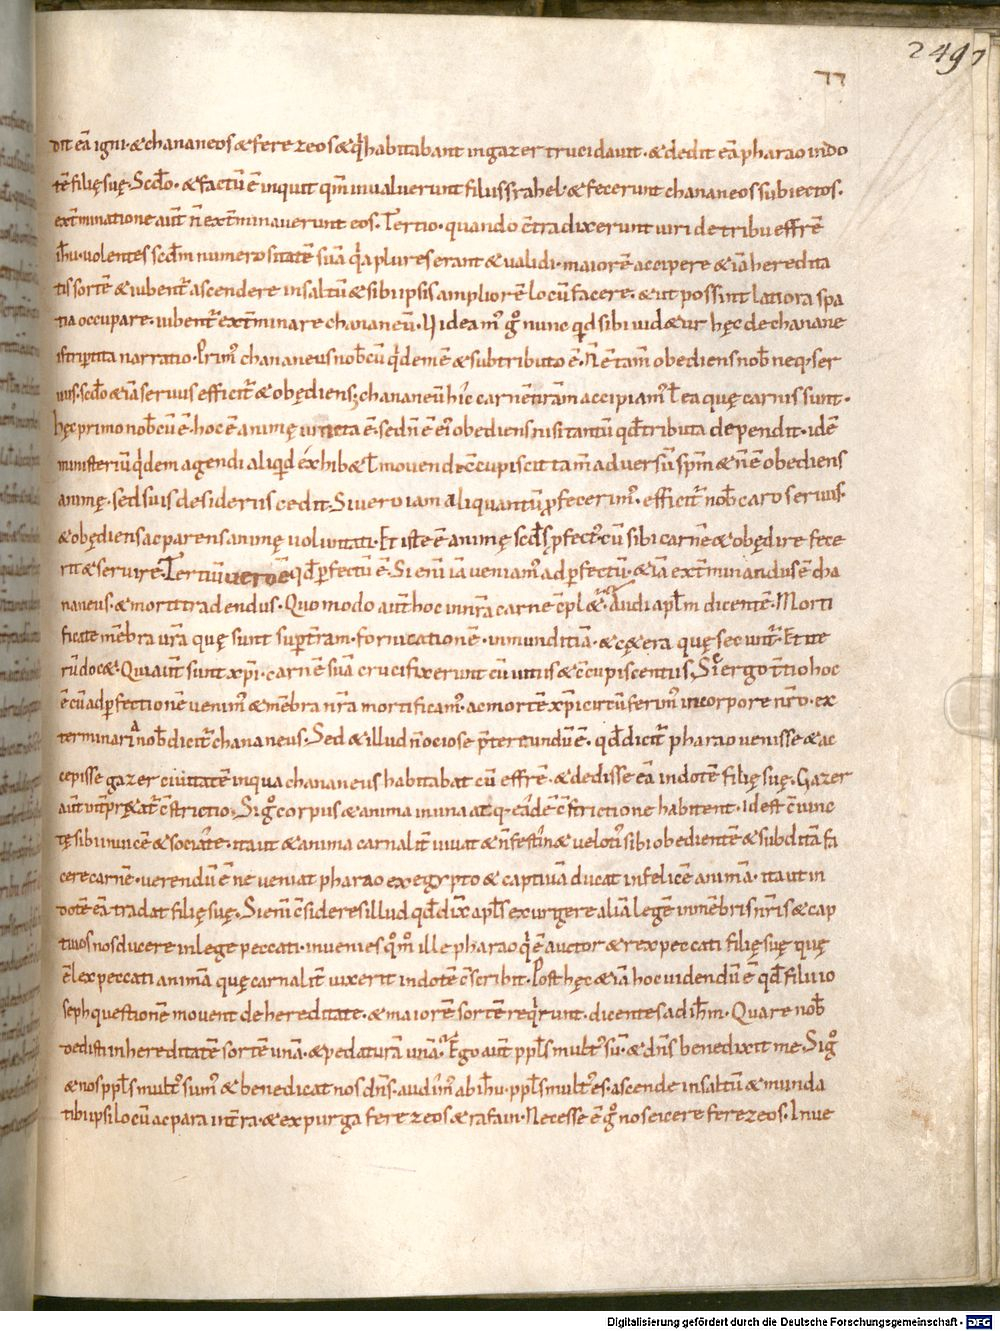 2497
77
dit eā igni· & chananeos & ferezeos & q̇ habitabant in gazer trucidauit· & dedit eā pharao in do
tē filię suę· Scdo· & factū ē inquit qm̄ inualuerunt filii israhel· & fecerunt chananeos subiectos·
ext̄minatione aut̄ n̄ ext̄minauerunt eos· Tertio· quando c̄tradixerunt uiri de tribu effrē
ih̄u· uolentes scdm̄ numerositatē suā q̇a plures erant & ualidi· maiorē accipere & iā heredita
tis sortē & iubent̄ ascendere in saltū & sibi ipsis ampliorē locū facere· & ut possint latiora spa
tia occupare· iubent̄ ext̄minare chananeū· Videam᷒ g̊ nunc quid sibi uid&ur hęc de chanane
is scripta narratio· Prim᷒ chananeus nob̄cū q̇dem ē & sub tributo ē· N̄ ē tam̄ obediens nob̄ neq; ser
uus· scdo & iā seruus efficit̄ & obędiens; chananeū hic carnē nr̄am accipiam᷒ ł ea quę carnis sunt·
hęc primo nob̄cū ē· hoc ē animę uncta ē· sed n̄ ē ei obediens nisi tantū qd̄ tributa dependit· idē
ministeriū q̇dem agendi aliquid exhib& ł mouendi· c̄cupiscit tam̄ aduersū sp̄m & n̄ ē obediens
animę· sed suis desideriis cedit· Si uero iam aliquantū ꝓfecerim᷒· efficit̄ nob̄ caro seruus·
& obędiens ac parens animę uoluntati· Et iste ē animę scds ꝓfect᷒· cū sibi carnē & obędire fece
rit & seruire· Tertiū uero ē qd̄ perfectū ē· Si eni iā ueniam᷒ ad perfectū· & iā ext̄minandus ē cha
naneus· & morti tradendus· Quomodo aut̄ hoc in nr̄a carne c̄pl&ur· Audi apl̄m dicentē· Morti
ficate mēbra ur̄a quę sunt sup t̄ram· fornicationē· inmunditiā· & c&era quę secunt̄· Et ite
rū doc&· Qui aut̄ sunt xp̄i· carnē suā crucifixerunt cū uitiis & c̄cupiscentiis· Sic ergo t̄tio hoc
ē cū ad perfectionē uenim᷒ & mēbra nr̄a mortificam᷒· ac mortē xp̄i circūferim᷒ in corpore nr̄o· ex
terminari a nob̄ dicit̄ chananeus· Sed & illud n̄ ociose p̄tereundū ē· qd̄ dicit̄ pharao uenisse & ac
cepisse gazer ciuitatē in qua chananeus habitabat cū effrē· & dedisse eā in dotē filię suę· Gazer
aut̄ int̄pr&at̄ c̄strictio· Si g̊ corpus & anima in una atq; eadē c̄strictione habitent· id est c̄iunc
tę sibi inuicē & sociatę· ita ut & anima carnalit̄ uiuat & n̄ festin& uelot᷒ sibi obedientē & subditā fa
cere carnē· uerendū ē ne ueniat pharao ex egypto & captiuā ducat infelicē animā· ita ut in
dotē eā tradat filię suę· Si eni c̄sideres illud qd̄ dix̄ apl̄s exurgere aliā legē in mēbris nr̄is & cap
tiuos nos ducere in lege peccati· inuenies qm̊ ille pharao q̇ ē auctor & rex peccati filię suę quę
ē lex peccati animā quę carnalit̄ uixerit in dotē c̄scribit· Post hęc & iā hoc uidendū ē qd̄ filii io
seph questionē mouent de hereditate· & maiorē sortē reqrunt· dicentes ad ih̄m· Quare nob̄
dedisti in hereditatē sortē unā· & pedaturā unā· Ego aut̄ ppl̄s mult᷒ sū· & dn̄s benedixit me· Si g̊
& nos ppl̄s mult᷒ sum᷒ & benedicat nos dn̄s· audim᷒ ab ih̄u· ppl̄s mult᷒ es· ascende in saltū & munda
tibi ipsi locū ac para int̄ra· & expurga ferezeos & rafain· Necesse ē g̊ nos eicere ferezeos· Inue
Digitalisierung gefördert durch die Deutsche Forschungsgemeinschaft - DFG